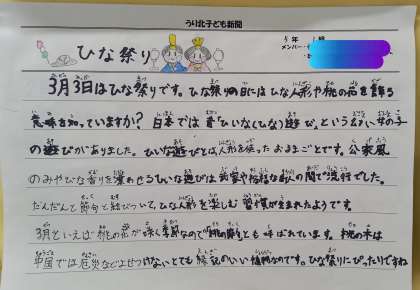 うり北子ども新聞
5年 1組
メンバー
ひな祭り
3月3日はひな祭りです。ひな祭りの日にはひな人形や桃の花を飾る
意味を知っていますか？日本では昔「ひいな(ひな)遊び」という幼い女の子
の遊びがありました。ひいな遊びとは人形を使ったおままごとです。公家風
のみやびな香りを漂わせるひいな遊びは武家や裕福な商人の間で流行でした。
だんだんと節句と結びついて、ひな人形を楽しむ習慣が生まれたようです。
3月といえば桃の花が咲く季節なので「桃の節句」とも呼ばれています。桃の木は
中国では厄災などよせつけないとても縁起のいい植物なのです。ひな祭りにぴったりですね